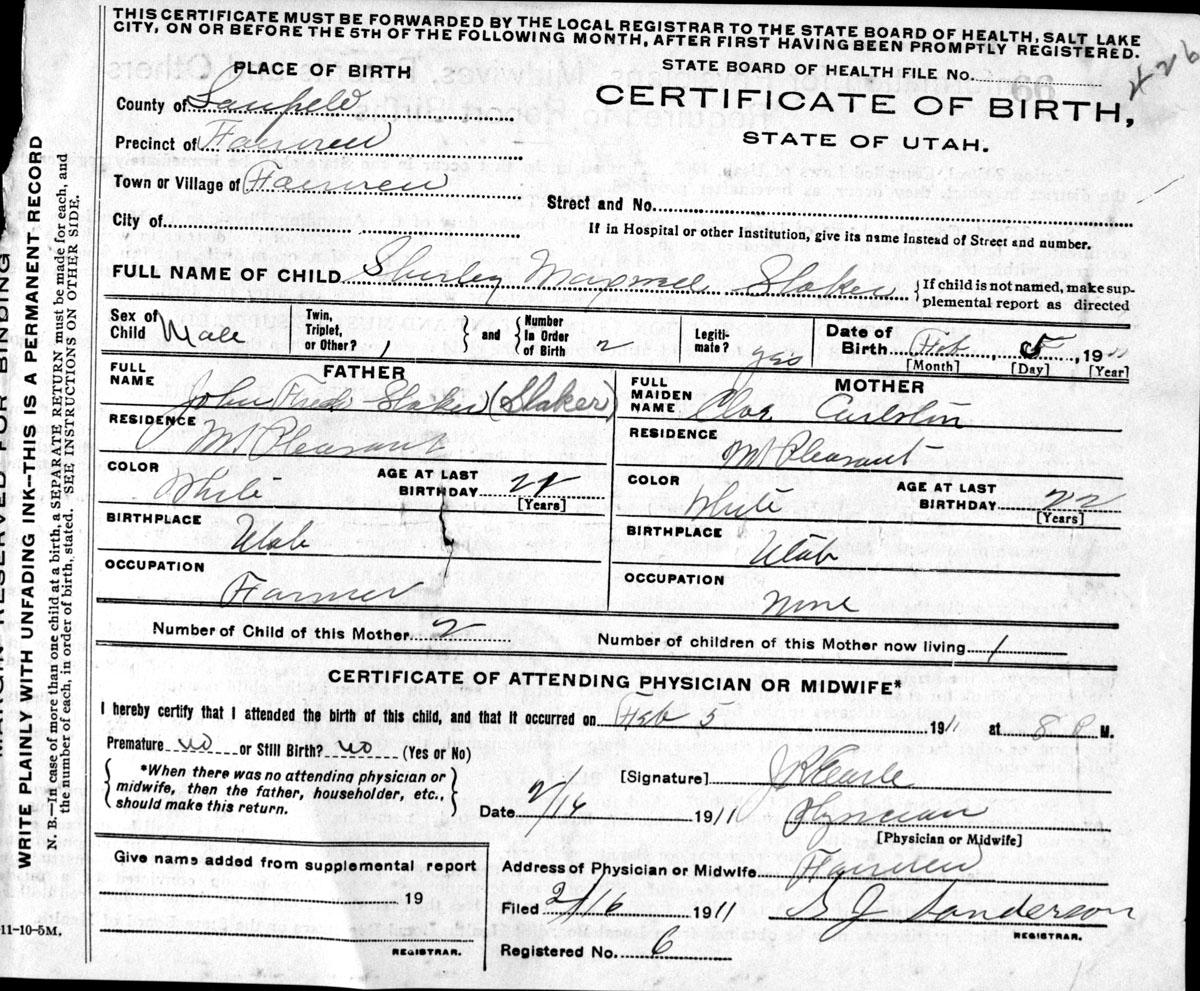 THIS CERTIFICATE MUST BE FORWARDED BY THE LOCAL REGISTRAR TO THE STATE BOARD OF HEALTH, SALT LAKE
CITY, ON OR BEFORE THE 5TH OF THE FOLLOWING MONTH, AFTER FIRST HAVING BEEN PROMPTLY REGISTERED.
PLACE OF BIRTH
STATE BOARD OF HEALTH FILE No.
426
County of Sanpete
CERTIFICATE OF BIRTH,
STATE OF UTAH.
Precinct of Fairview
Town or Village of Fairview
Street and No.
City of
If in Hospital or other Institution, give its name instead of Street and number.
FULL NAME OF CHILD Shirley Staker
If child is not named, make sup-
plemental report as directed
Sex of Child Male
Twin, Triplet, or Other? 1
and Number In Order of Birth 2
Legiti-mate? yes
Date of Birth Feb. 5, 1911
[Month] [Day] [Year]
FATHER
FULL NAME John Fred Staker (Staker)
RESIDENCE Mt Pleasant
COLOR White
AGE AT LAST BIRTHDAY 22
[Years]
BIRTHPLACE Utah
OCCUPATION Farmer
MOTHER
FULL MAIDEN NAME
RESIDENCE Mt Pleasant
COLOR White
AGE AT LAST BIRTHDAY 22
[Years]
BIRTHPLACE Utah
OCCUPATION None
Number of Child of this Mother 2
Number of children of this Mother now living 1
CERTIFICATE OF ATTENDING PHYSICIAN OR MIDWIFE*
I hereby certify that I attended the birth of this child, and that it occurred on Feb 5 1911 at 8 P M.
Premature no or Still Birth? no (Yes or No)
*When there was no attending physician or
midwife, then the father, householder, etc.,
should make this return.
[Signature]
Date 2/16 1911
Physician
[Physician or Midwife]
Give name added from supplemental report
19
REGISTRAR.
Address of Physician or Midwife Fairview
Filed 2/16 1911
Sanderson
REGISTRAR.
Registered No. 6
11-10-5M.
WRITE PLAINLY WITH UNFADING INK—THIS IS A PERMANENT RECORD
N. B.—In case of more than one child at a birth, a SEPARATE RETURN must be made for each, and
the number of each, in order of birth, stated. SEE INSTRUCTIONS ON OTHER SIDE.
RESERVED FOR BINDING